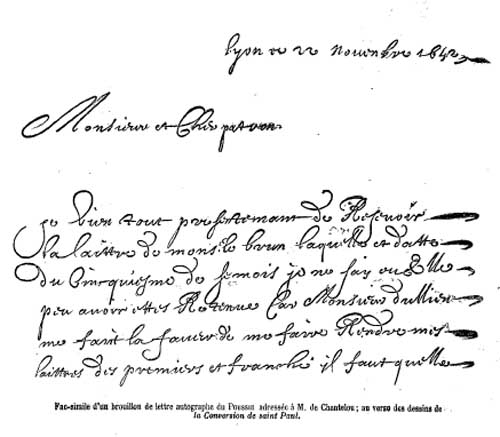 lyon ce 22 Novenbre 1642
Monsieur et Cher patron
Je bien tout presentemant de Resevoir
la laittre de mons.le brun laquelle et datte
du Cincquiesme de se mois je ne say ou elle
peu avoir ettes Retenue Car Monsieur dullieu
me fait la faveur de me faire Rendre mes
laittres des premiers et franche il faut quelle
Fac-simile d'un brouillon de lettre autographe du Poussin adressée à M. de Chantelou; au verso des dessins de
la Conversion de saint Paul.